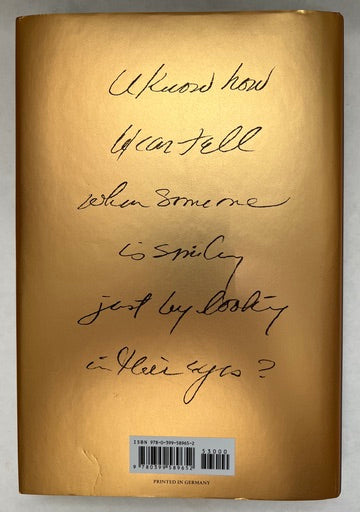 U know how
U can tell
when someone
is smiling
just by looking
in their eyes?
ISBN 978-0-399-58965-2
53000
9 780399 589652
PRINTED IN GERMANY